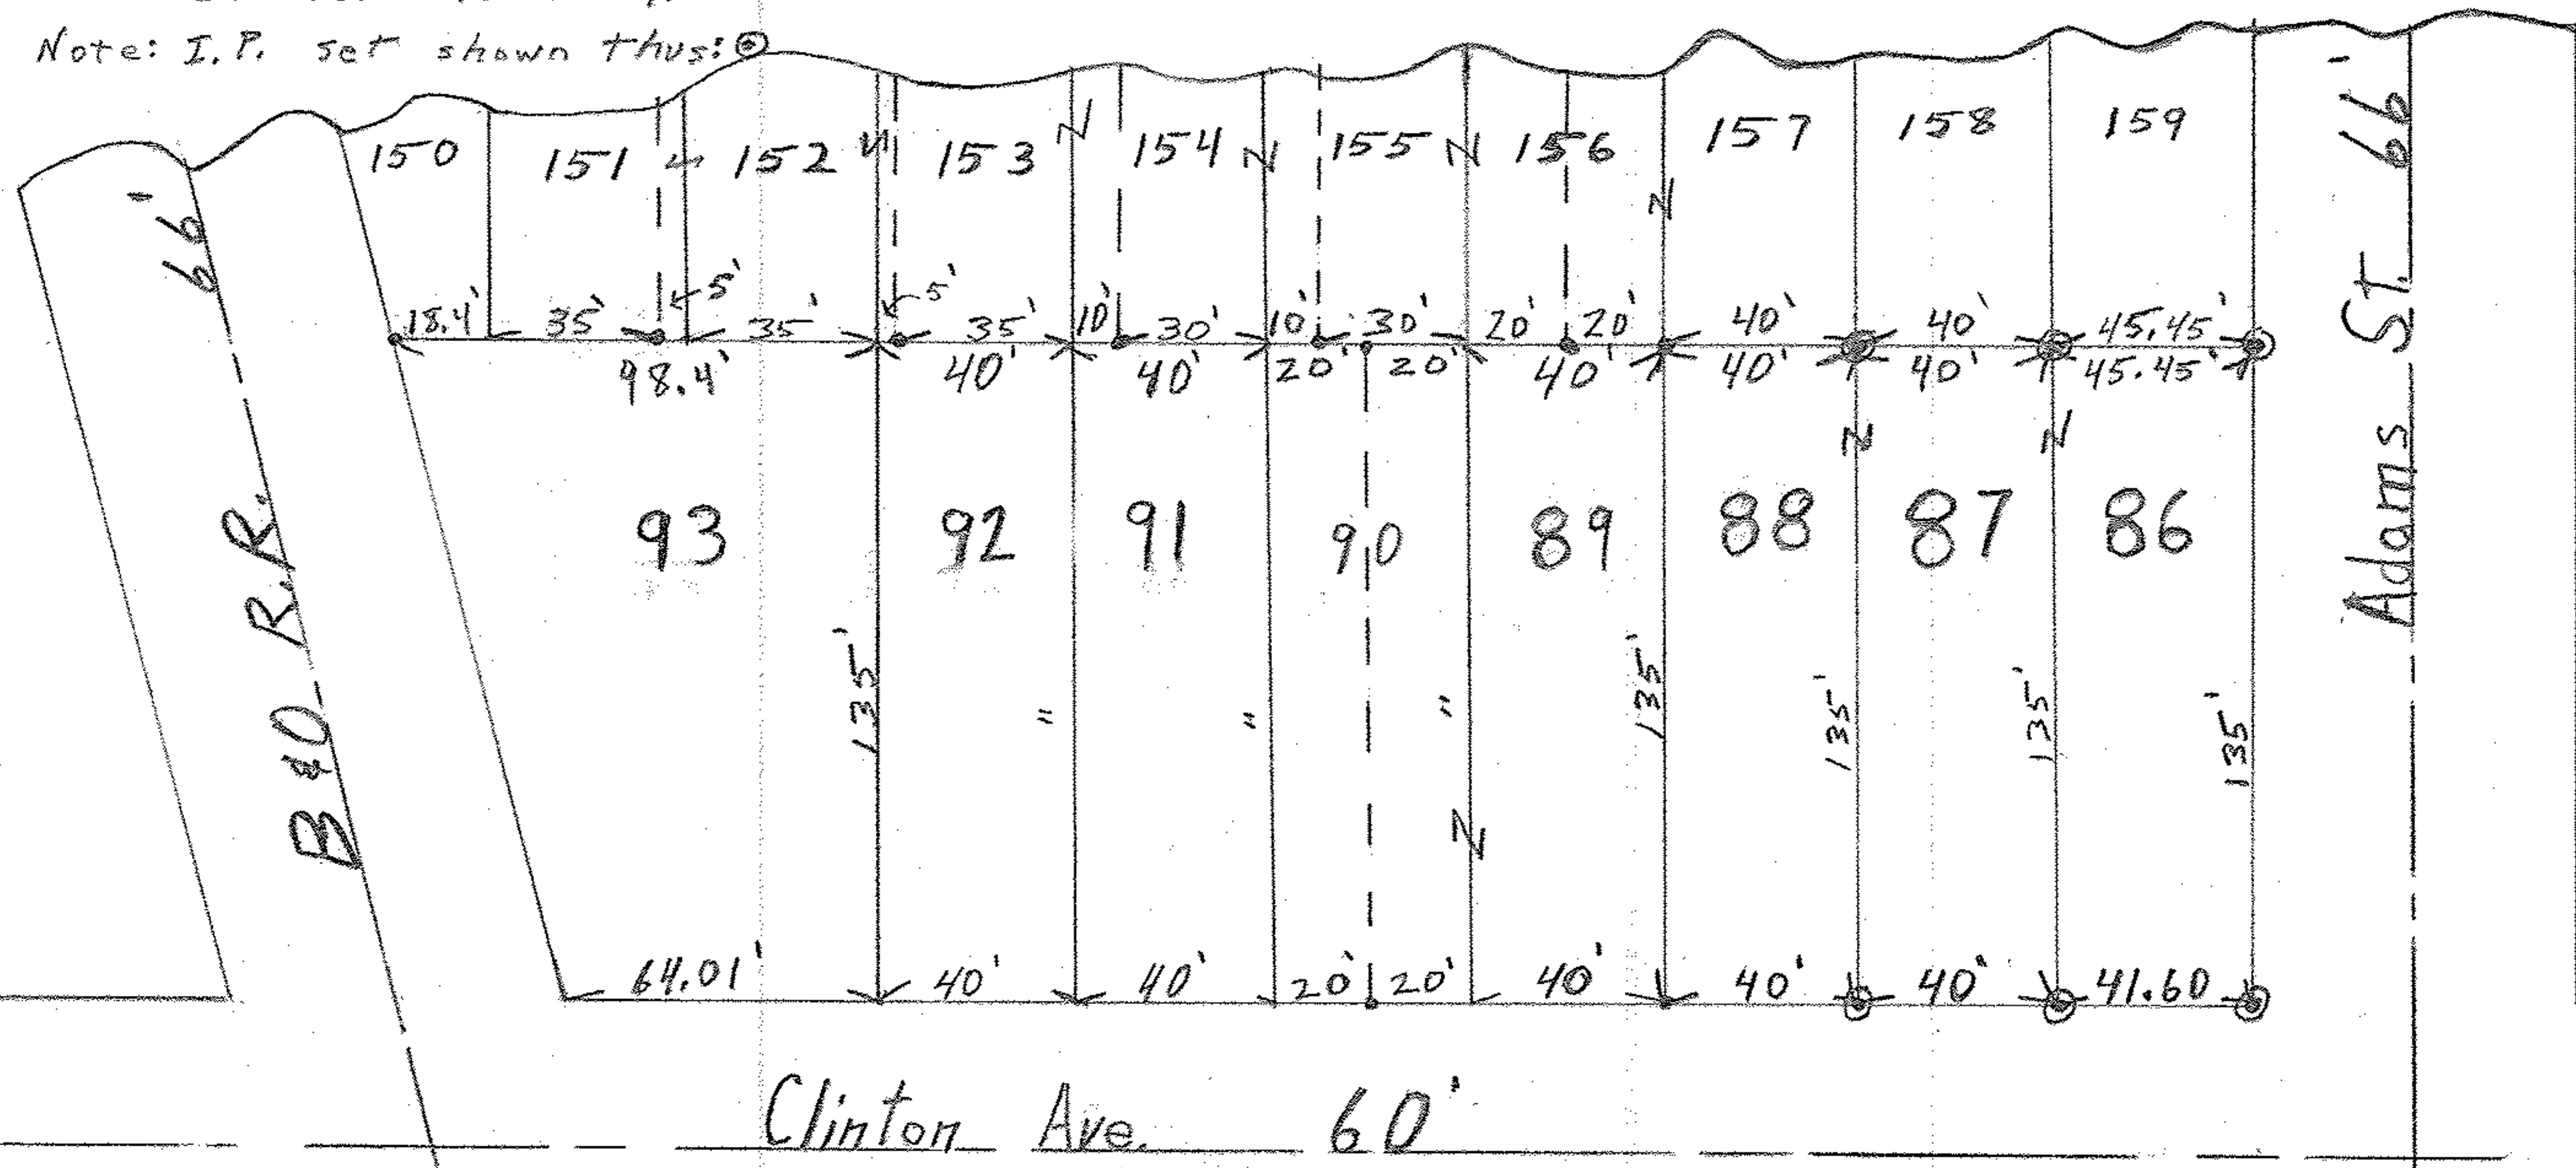 Note: I.P. set shown thus:
150 151 152 153 154 155 156 157 158 159
66'
66'
18.4' 35' 5' 35' 5' 35' 10' 30' 10' 30' 20' 20' 40' 40' 45.45'
98.4' 40' 40' 20' 20' 40' 40' 40' 45.45'
93 92 91 90 89 88 87 86
B & O R.R.
Adams St.
135' " " " 135' 135' 135' 135'
64.01' 40' 40' 20' 20' 40' 40' 40' 41.60
Clinton Ave. 60'